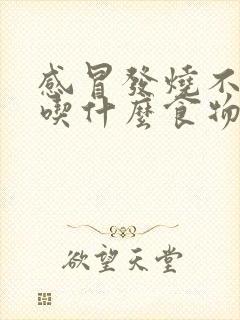 感冒發燒不
喫什麼食物
欲望天堂